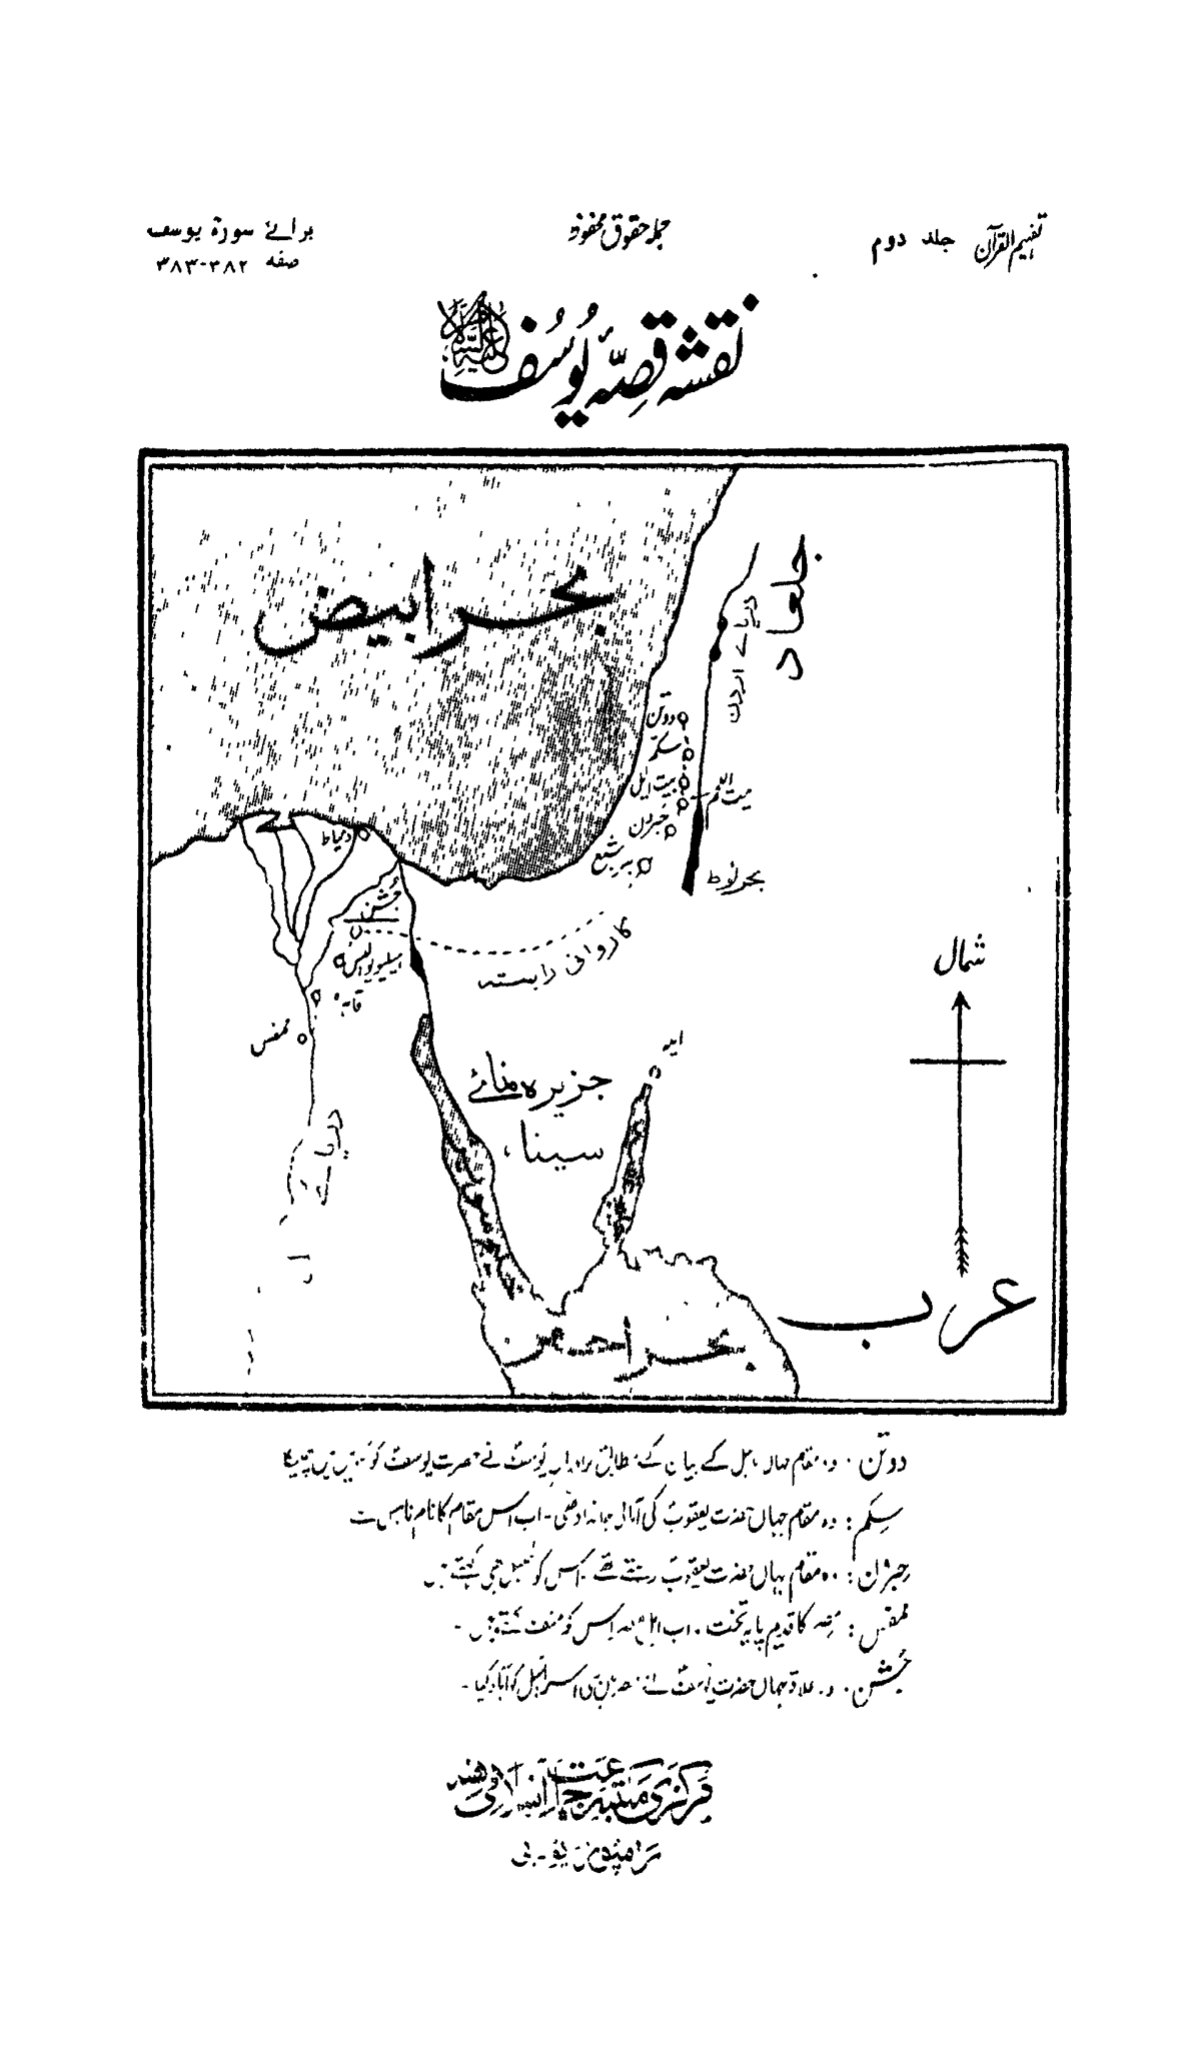 تفہیم القرآن جلد دوم
جملہ حقوق محفوظ
برائے سورۃ یوسف
صفحہ ۳۸۲-۳۸۳
نقشہ قصّۂ یُوسُف علیہ السلام
بحر ابیض
جلعاد
دریائے اردن
دوتن
سکم
بیت ایل
بیت اللحم
حبرون
بیر شبع
بحر لوط
دمیاط
جُشن
کاروانی راستہ
ہیلیوپولس
قاہرہ
ممفس
شمال
ایلہ
جزیرہ نمائے
سینا
دریائے
عرب
بحر احمر
دوتن: وہ مقام جہاں بائبل کے بیان کے مطابق برادرانِ یوسفؑ نے حضرت یوسفؑ کو کنویں میں پھینکا
سِکم: وہ مقام جہاں حضرت یعقوبؑ کی آبائی جائداد تھی۔ اب اس مقام کا نام نابلس ہے
حبرون: وہ مقام جہاں حضرت یعقوبؑ رہتے تھے۔ اس کو الخلیل بھی کہتے ہیں
ممفس: مصر کا قدیم پایہ تخت۔ اب اہل مصر اس کو منف کہتے ہیں۔
جُشن: وہ علاقہ جہاں حضرت یوسفؑ نے بنی اسرائیل کو آباد کیا۔
مرکزی مکتبہ جماعت اسلامی ہند
رامپور۔ یو۔پی